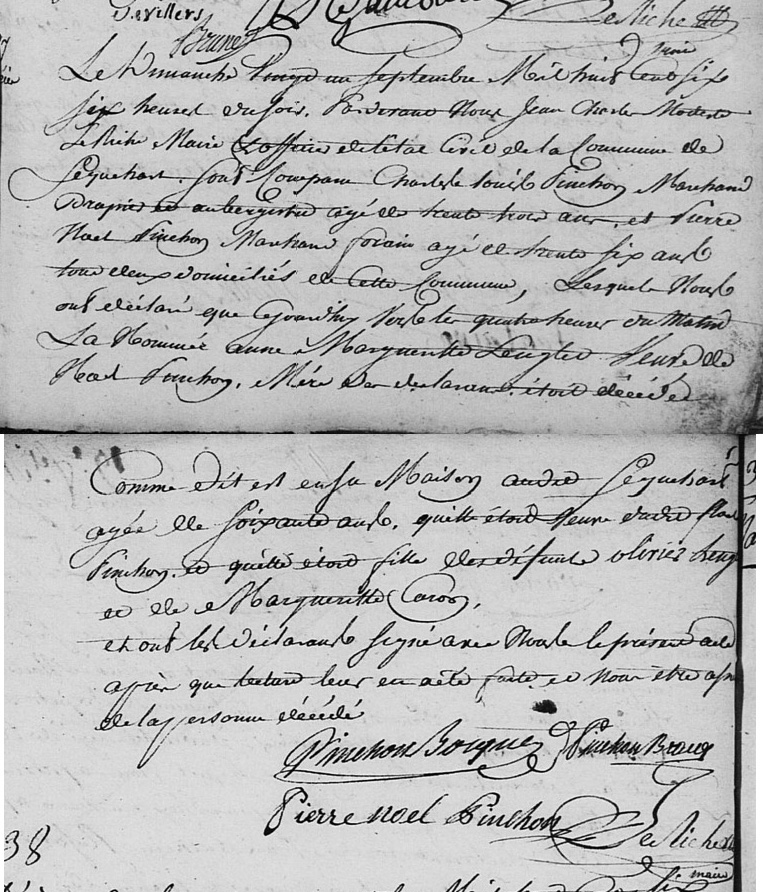 Devillers
Brunet
Le Riche
maire
Le Dimanche vingt un septembre Mil huit Cent six
six heures du soir. Pardevant Nous Jean Charles Modeste
Le Riche Maire Et officier de l'état Civil de la Commune de
Sequehart. sont Comparu Charlesle Louis Pinchon Marchand
Drapier et aubergiste agé de trente trois ans. et Pierre
Noel Pinchon Marchand forain agé de trente six ans
tous deux domiciliés de Cette Commune, Lesquels Nous
ont déclaré que ajourdhuy Vers les quatre heures du Matin
La Nommée anne Marguerithe Lenglet Veuve de
Noel Pinchon, Mère des declarans étoit décédé
Comme dit est en sa Maison audit Sequehart
agée de soixante ans. quelle étoit Veuve dudit Noel
Pinchon. et quelle étoit fille des défunts olivier Leng
et de Marguerithe Caron,
et ont les déclarans signé avec Nous le présent acte
après que lecture leur en a été faite et Nous être assu
de la personne décédé
Pinchon Pinchon
Pierre noel Pinchon Le Riche
maire
38